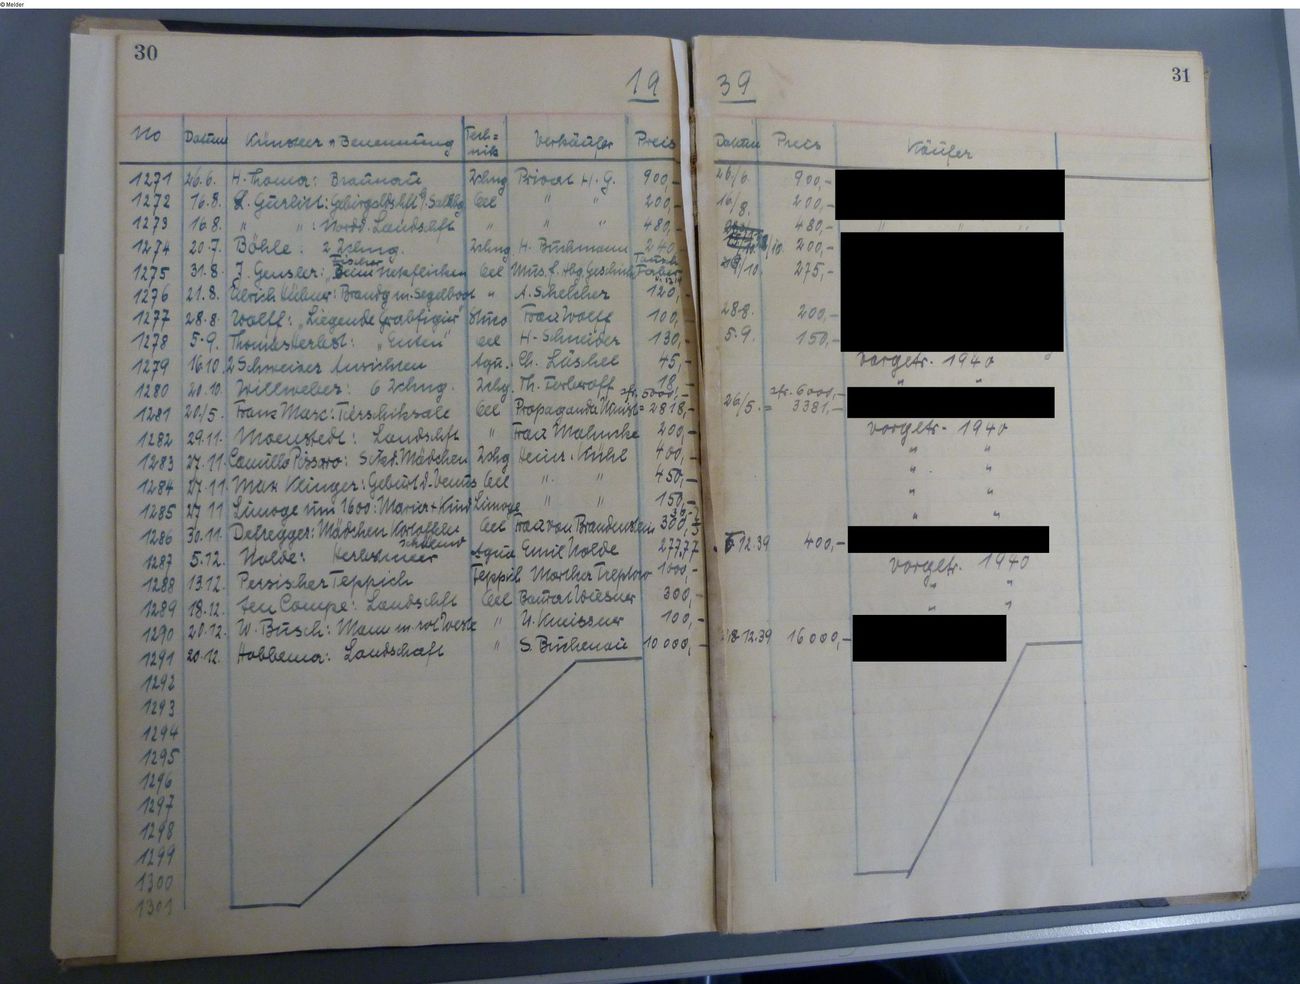 © Melder
30
19
No Datum Künstler u Benennung Tech=nik Verkäufer Preis
1271 26.6. H. Thoma: Braunau Zchng Privat H. G. 900,-
1272 16.8. L. Gurlitt: Oel " " 200,-
1273 16.8. " " : Nordd. Landschaft " " " 480,-
1274 20.7. Böhle: 2 Zchng. Zchng H. Buchmann 240
1275 31.8. J. Gensler: Oel Mus. f. Hbg. Geschichte Tausch
1276 21.8. Ulrich Hübner: Brandg m. Segelboot " A. Schelcher 120,-
1277 28.8. Wolff: "Liegende Grabfigur" Frau Wolff 100,-
1278 5.9. Thomas Herbst: "Enten" Oel H. Schneider 130,-
1279 16.10. 2 Schweizer Ansichten Aqu. Ch. Lüshel 45,-
1280 20.10. Willweber: 6 Zchng. Zchg Th. 18,-
1281 20/5. Franz Marc: Tierschiksale Oel Propaganda Minist. sfr. 5000,- = 2818,-
1282 29.11. Landschft " Frau Mahncke 200,-
1283 27.11. Camillo Pissaro: Mädchen Zchg Henr. Kühl 400,-
1284 27.11. Max Klinger: Geburt d. Venus Oel " " 450,-
1285 27.11 Limoge um 1600: Maria + Kind Limoge " " 150,-
1286 30.11. Defregger: Mädchen Kartoffeln schälend Oel Frau von Brandenstein 300,-
1287 5.12. Nolde: Herbstmeer Aqua Emil Nolde 277,77
1288 13.12. Persischer Teppich Teppich Martha Treplow 1000,-
1289 18.12. ten Compe: Landschft Oel Baurat Wiesner 300,-
1290 20.12. W. Busch: Mann m. rot Weste " U. Knissner 100,-
1291 20.12. Hobbema: Landschaft " S. Buchenau 10 000,-
1292
1293
1294
1295
1296
1297
1298
1299
1300
1301
31
39
Datum Preis Käufer
26/6. 900,-
16/8. 200,-
480,- " "
/10. 200,-
/10. 275,-
28.8. 200,-
5.9. 150,-
vorgetr. 1940
" "
sfr. 6000,-
26/5. = 3381,-
vorgetr. 1940
" "
" "
" "
" "
12.39 400,-
vorgetr. 1940
" "
" "
28.12.39 16 000,-